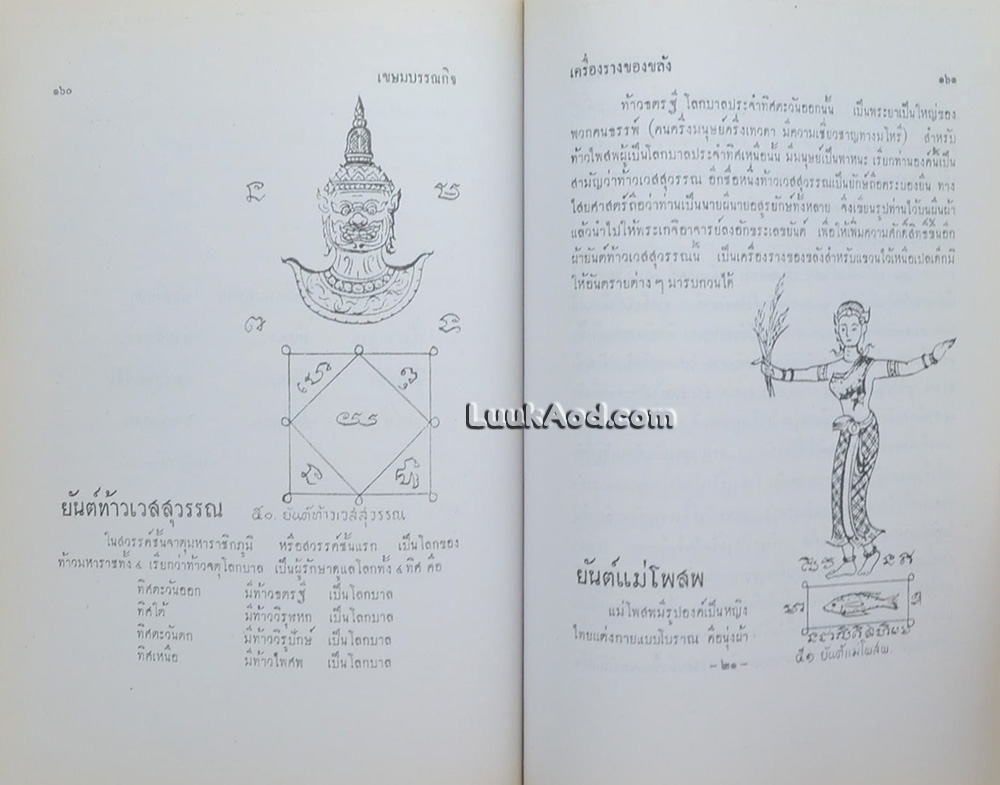 ๑๖๐
เขษมบรรณกิจ
ยันต์ท้าวเวสสุวรรณ
๕๐. ยันต์ท้าวเวสสุวรรณ
ในสวรรค์ชั้นจาตุมหาราชิกภูมิ หรือสวรรค์ชั้นแรก เป็นโลกของ
ท้าวมหาราชทั้ง ๔ เรียกว่าท้าวจตุโลกบาล เป็นผู้รักษาดูแลโลกทั้ง ๔ ทิศ คือ
ทิศตะวันออก มีท้าวธตรฐ์ เป็นโลกบาล
ทิศใต้ มีท้าววิรุฬหก เป็นโลกบาล
ทิศตะวันตก มีท้าววิรูปักษ์ เป็นโลกบาล
ทิศเหนือ มีท้าวไพศพ เป็นโลกบาล
LuukAod.com
เครื่องรางของขลัง
๑๖๑
ท้าวธตรฐ์ โลกบาลประจำทิศตะวันออกนั้น เป็นพระยาเป็นใหญ่ของ
พวกคนธรรพ์ (คนครึ่งมนุษย์ครึ่งเทวดา มีความเชี่ยวชาญทางมโหรี) สำหรับ
ท้าวไพสพผู้เป็นโลกบาลประจำทิศเหนือนั้น มีมนุษย์เป็นพาหนะ เรียกท่านองค์นี้เป็น
สามัญว่าท้าวเวสสุวรรณ อีกชื่อหนึ่งท้าวเวสสุวรรณเป็นยักษ์ถือตระบองยืน ทาง
ไสยศาสตร์ถือว่าท่านเป็นนายผีนายอสูรยักษ์ทั้งหลาย จึงเขียนรูปท่านไว้บนผืนผ้า
แล้วนำไปให้พระเกจิอาจารย์ลงอักขระเลขยันต์ เพื่อให้เพิ่มความศักดิ์สิทธิ์ขึ้นอีก
ผ้ายันต์ท้าวเวสสุวรรณนี้ เป็นเครื่องรางของขลังสำหรับแขวนไว้เหนือเปลเด็กมิ
ให้อันตรายต่าง ๆ มารบกวนได้
ยันต์แม่โพสพ
แม่โพสพมีรูปองค์เป็นหญิง
ไทยแต่งกายแบบโบราณ คือนุ่งผ้า
๕๑ ยันต์แม่โพสพ.
– ๒๑ –